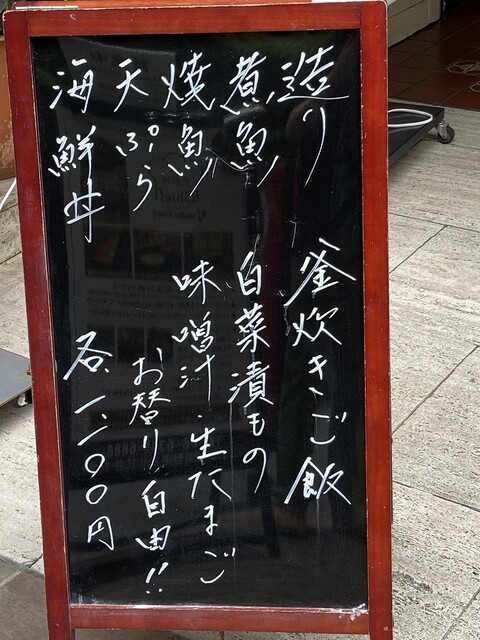 造り
煮魚
焼魚
天ぷら
海鮮丼
釜炊きご飯
白菜漬もの
味噌汁・生たまご
お替り自由!!
各一、二〇〇円